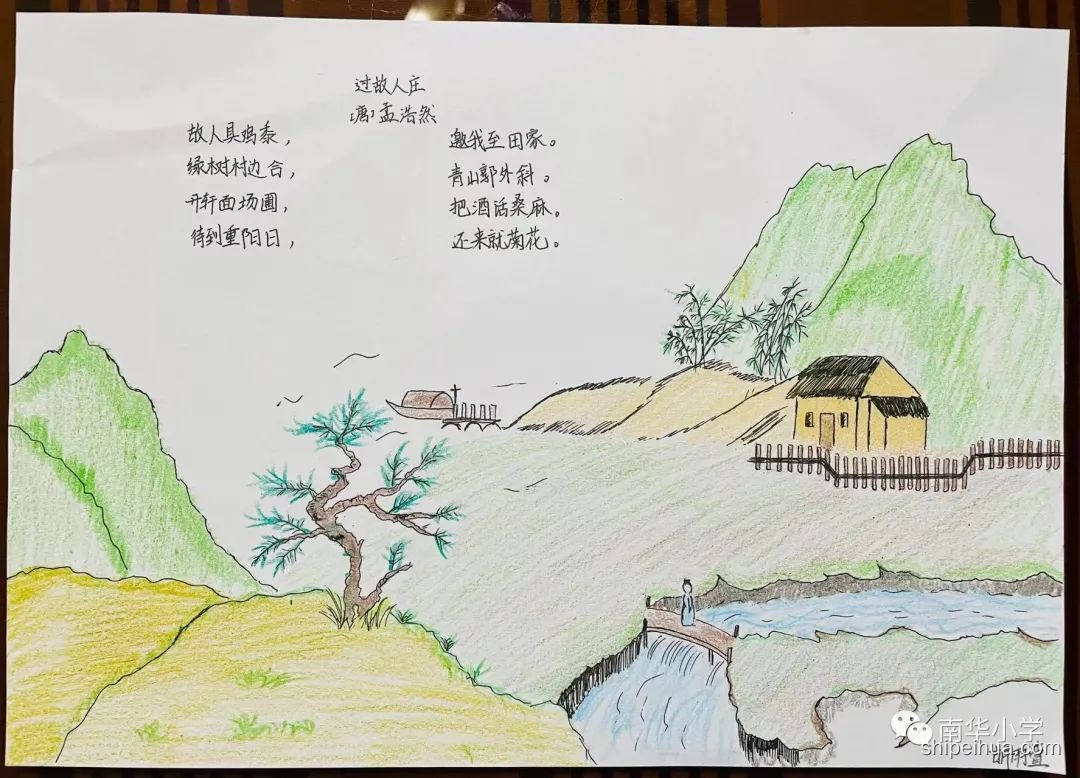 过故人庄
[唐]孟浩然
故人具鸡黍， 邀我至田家。
绿树村边合， 青山郭外斜。
开轩面场圃， 把酒话桑麻。
待到重阳日， 还来就菊花。
南华小学
shipeihua.com